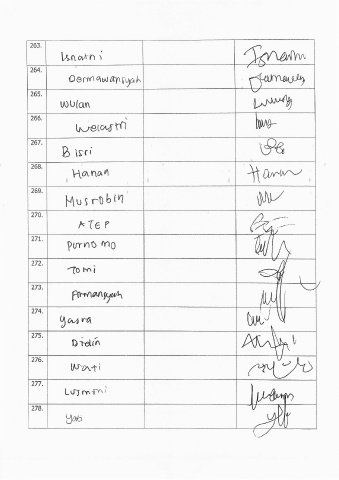 263. Isnaini
264. Dermawansyah
265. Wulan
266. Welastri
267. Bisri
268. Hanan Hanan
269. Musrobin
270. ATEP
271. Purnomo
272. Tomi
273. Firmansyah
274. Yasra
275. Didin
276. Wati
277. Lusmini
278. Yati